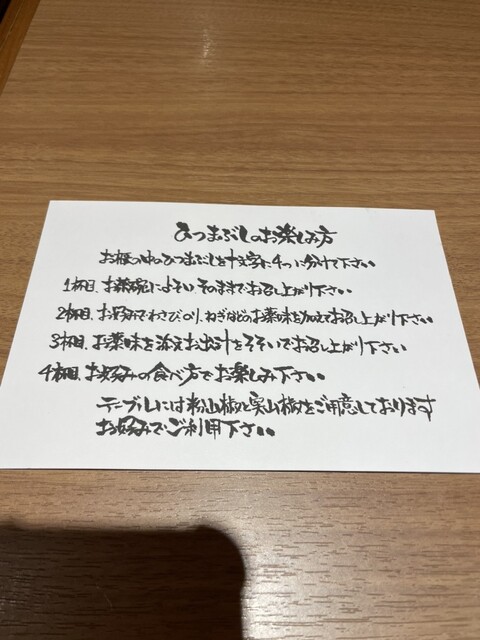 ひつまぶしのお楽しみ方
お櫃の中のひつまぶしを十文字に4つに分けて下さい
1杯目、お茶碗によそいそのままでお召し上がり下さい
2杯目、お好みでわさび、のり、ねぎなどのお薬味を加えお召し上がり下さい
3杯目、お薬味を添えお出汁をそそいでお召し上がり下さい
4杯目、お好みの食べ方でお楽しみ下さい
テーブルには粉山椒と実山椒をご用意しております
お好みでご利用下さい